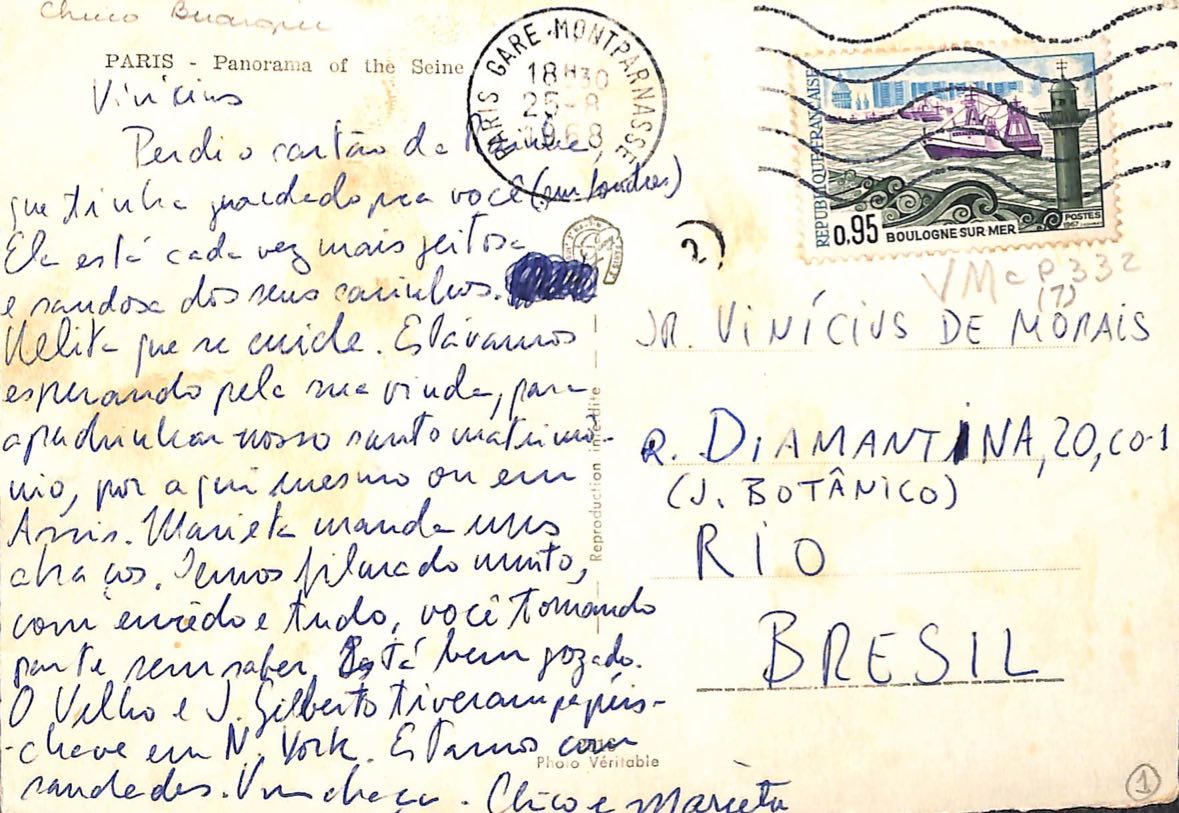 Chico Buarque
PARIS - Panorama of the Seine
Vinícius
Perdi o cartão da
que tinha guardado pra você (em Londres)
Ela está cada vez mais jeitosa
e saudosa dos seus carinhos.
Nelita que se cuide. Estávamos
esperando pela sua vinda, para
apadrinhar nosso santo matrimô-
nio, por aqui mesmo ou em
Assis. Marieta manda uns
abraços. Temos filmado muito,
com enrêdo e tudo, você tomando
parte sem saber. Está bem gozado.
O Velho e J. Gilberto tiveram papéis-
-chave em N. York. Estamos com
saudades. Um abraço. Chico e Marieta
Reproduction interdite
Photo Véritable
PARIS GARE MONTPARNASSE
18H30
25-8
1968
REPUBLIQUE FRANÇAISE
0,95 BOULOGNE SUR MER
POSTES
1967
2
VMcP332
(7)
SR. VINÍCIUS DE MORAIS
R. DIAMANTINA, 20, CO-1
(J. BOTÂNICO)
RIO
BRESIL
1